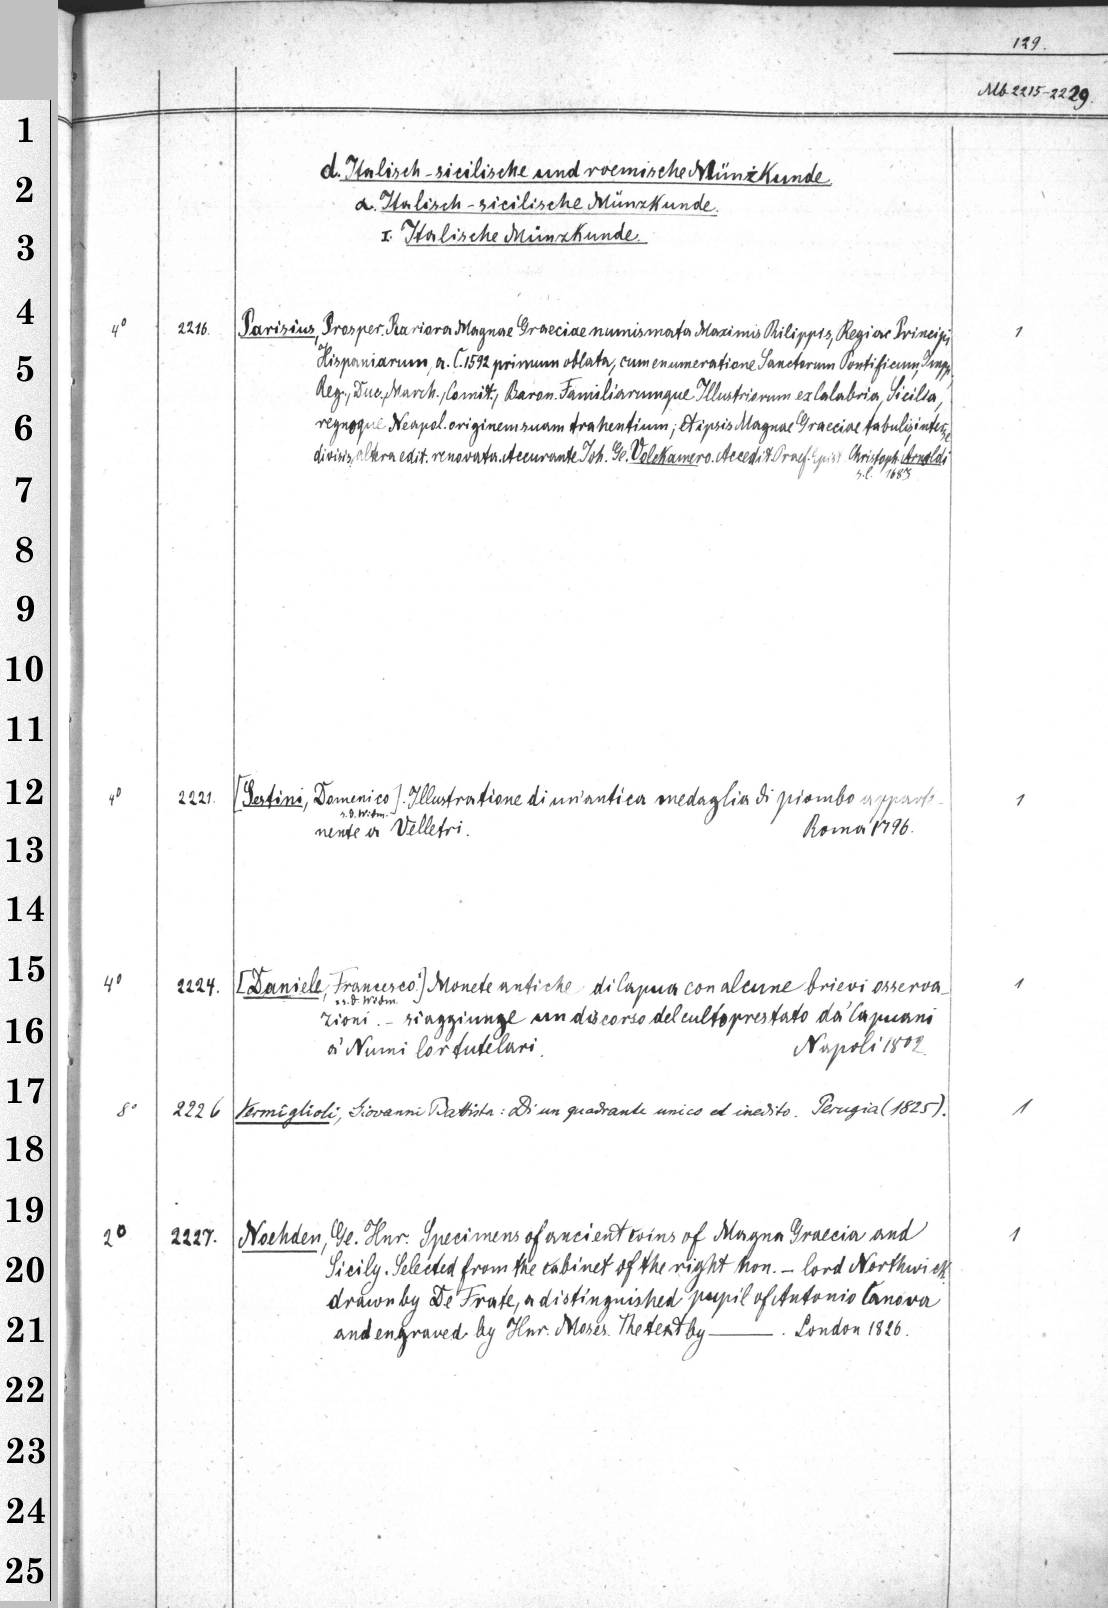 129.
Mb 2215-2229.
d. Italisch-sicilische und roemische Münzkunde
a. Italisch-sicilische Münzkunde.
I. Italische Münzkunde.
4° 2216. Parisius, Prosper. Rariora Magnae Graeciae numismata Maximis Philippis, Regiae Principi 1
Hispaniarum, a. C. 1592 primum oblata, cum enumeratione Sanctorum Pontificum, Impp.,
Reg., Duc., March., Comit., Baron. Familiarumque Illustriorum ex Calabria, Sicilia,
regnoque Neapol. originem suam trahentium; et ipsis Magnae Graeciae tabulis inter se
divisis, altera edit. renovata. Accurante Joh. Ge. Volckamero. Accedit Praef. Epist Christoph. Arnoldi
s.l. 1683
4° 2221. [Sestini, Domenico]. Illustratione di un' antica medaglia di piombo apparte- 1
s. d. Widm.
nente a Velletri. Roma 1796.
4° 2224. [Daniele, Francesco] Monete antiche di Capua con alcune brievi osserva- 1
s. d. Widm.
zioni. - si aggiunge un discorso del culto prestato da' Capuani
a' Numi lor tutelari. Napoli 1802.
8° 2226 Vermiglioli, Giovanni Battista: Di un quadrante unico ed inedito. Perugia (1825). 1
2° 2227. Noehden, Ge. Hnr. Specimens of ancient coins of Magna Graecia and 1
Sicily. Selected from the cabinet of the right hon. - lord Northwick
drawn by De Frate, a distinguished pupil of Antonio Canova
and engraved by Hnr. Moses. The text by ——— . London 1826.
1
2
3
4
5
6
7
8
9
10
11
12
13
14
15
16
17
18
19
20
21
22
23
24
25